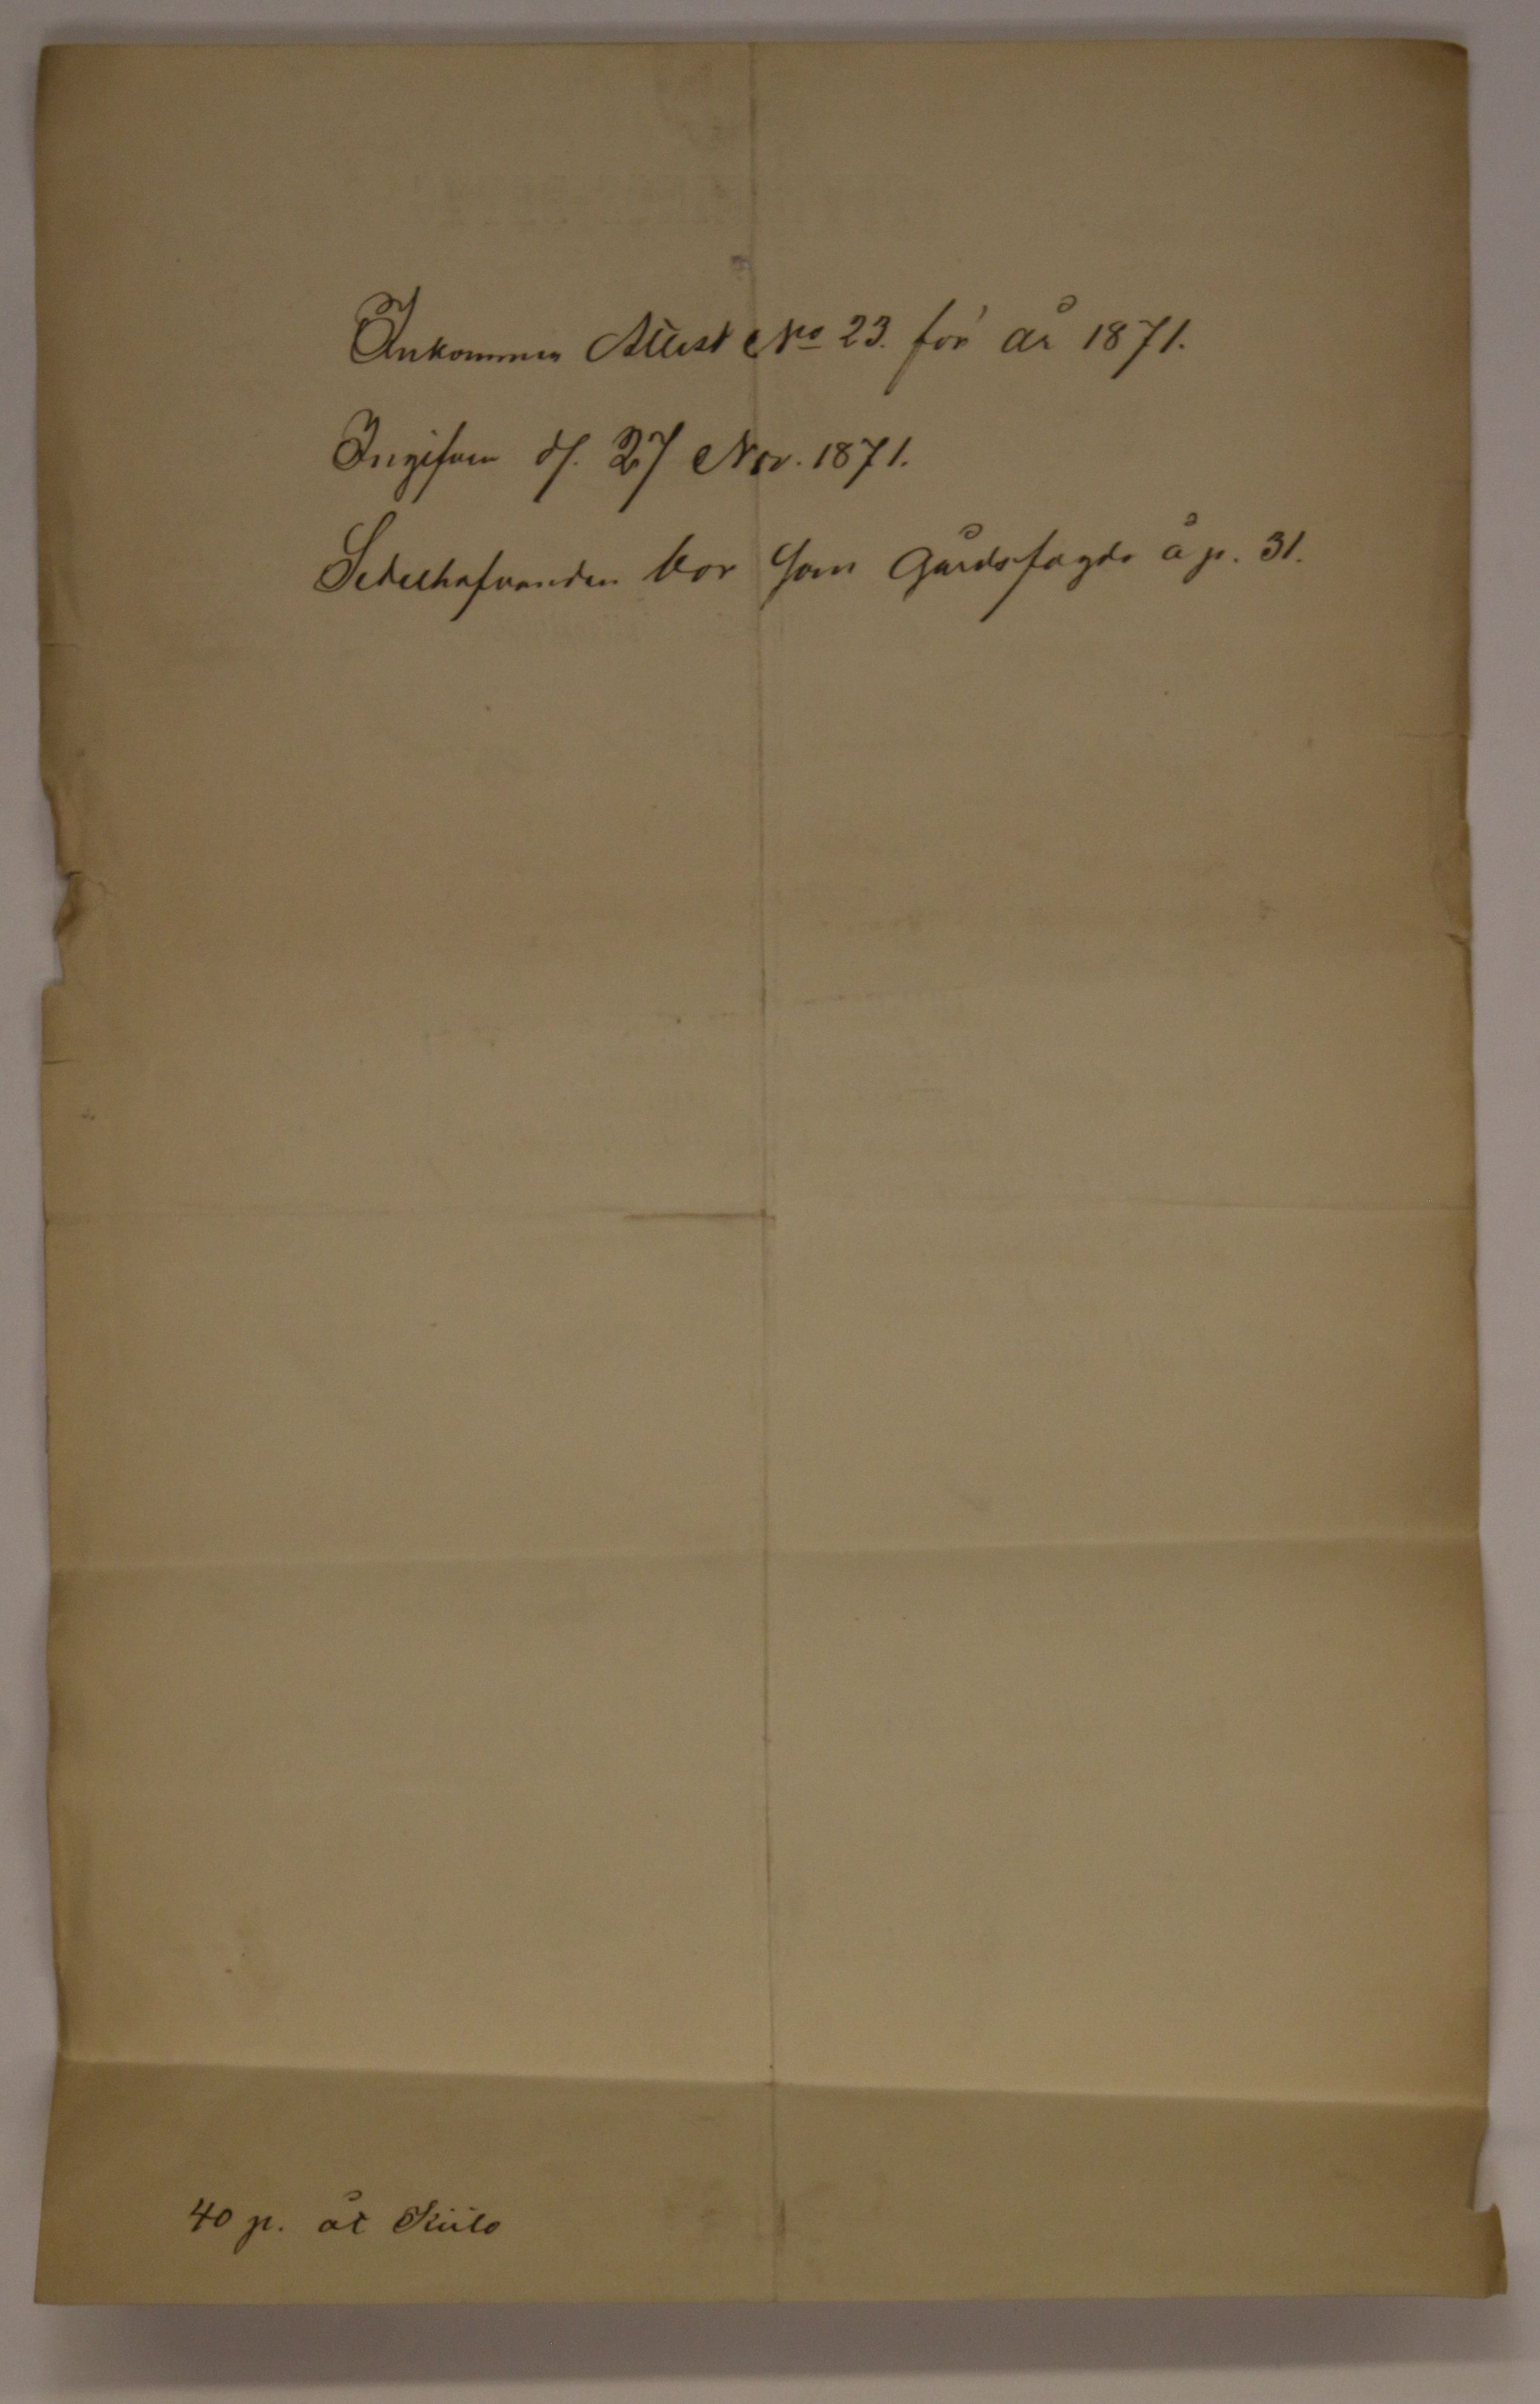 Inkommen Attest No 23. för år 1871.
Ingifven d. 27 Nov. 1871.
Sedelhafvanden bor som gårdsfogde å p. 31.
40 p. åt Kiilo